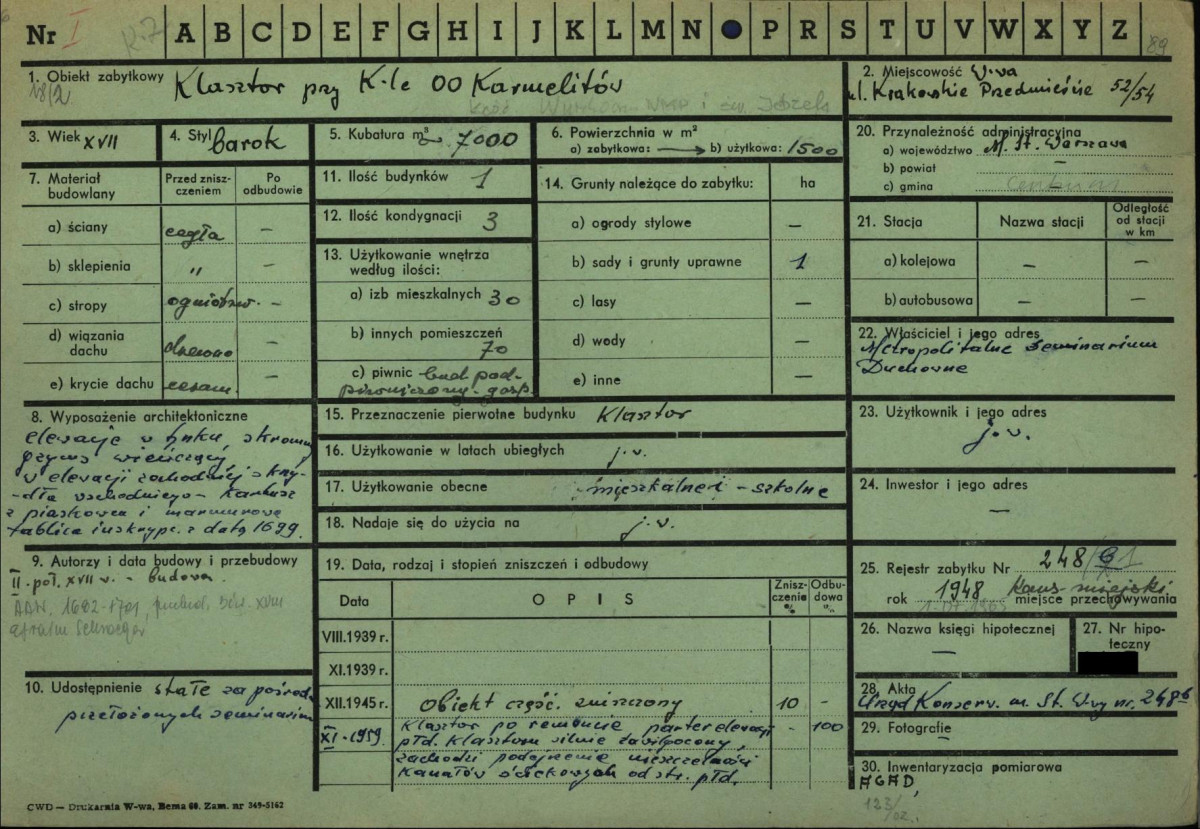 Nr I K.7 A B C D E F G H I J K L M N P R S T U V W X Y Z 89
1. Obiekt zabytkowy Klasztor przy K-le OO Karmelitów
18/2
2. Miejscowość W-wa
ul. Krakowskie Przedmieście 52/54
3. Wiek XVII
4. Styl barok
5. Kubatura m³ 7000
6. Powierzchnia w m²
a) zabytkowa: b) użytkowa: 1500
7. Materiał budowlany
Przed zniszczeniem
Po odbudowie
a) ściany cegła –
b) sklepienia " –
c) stropy ogniotrw. –
d) wiązania dachu drewno –
e) krycie dachu ceram. –
8. Wyposażenie architektoniczne
elewacje w tynku, skromny
gzyms wieńczący
w elewacji zachodniej skrzy-
-dła wschodniego – kartusz
z piaskowca i marmurowa
tablica inskrypc. z datą 1699.
9. Autorzy i data budowy i przebudowy
II. poł. XVII w. – budowa.
1682-1701, XVIII
Efraim Schroeger
10. Udostępnienie stałe za pośred.
przełożonych seminarium
11. Ilość budynków 1
12. Ilość kondygnacji 3
13. Użytkowanie wnętrza
według ilości:
a) izb mieszkalnych 30
b) innych pomieszczeń
70
c) piwnic bud. pod-
piwniczony. gosp.
14. Grunty należące do zabytku: ha
a) ogrody stylowe –
b) sady i grunty uprawne 1
c) lasy –
d) wody –
e) inne –
15. Przeznaczenie pierwotne budynku Klasztor
16. Użytkowanie w latach ubiegłych j.v.
17. Użytkowanie obecne mieszkalne i – szkolne
18. Nadaje się do użycia na j.v.
19. Data, rodzaj i stopień zniszczeń i odbudowy
Data OPIS Zniszczenie % Odbudowa %
VIII.1939 r.
XI.1939 r.
XII.1945 r. Obiekt częśc. zniszczony 10 –
XI.1959. Klasztor po remoncie parter elewacji – 100
płd. klasztoru silnie zawilgocony,
zachodzi podejrzenie nieszczelności
kanałów ściekowych od str. płd.
20. Przynależność administracyjna
a) województwo M. St. Warszawa
b) powiat –
c) gmina Centrum
21. Stacja Nazwa stacji Odległość od stacji w km
a) kolejowa – –
b) autobusowa – –
22. Właściciel i jego adres
Metropolitalne Seminarium
Duchowne
23. Użytkownik i jego adres
j.v.
24. Inwestor i jego adres
–
25. Rejestr zabytku Nr 248/
rok 1948 Kons. miejski
miejsce przechowywania
26. Nazwa księgi hipotecznej
–
27. Nr hipoteczny
28. Akta
Urząd Konserw. m. St. W-wy nr. 248
29. Fotografie
–
30. Inwentaryzacja pomiarowa
AGAD,
123/02.
CWD — Drukarnia W-wa, Bema 60. Zam. nr 349-5162